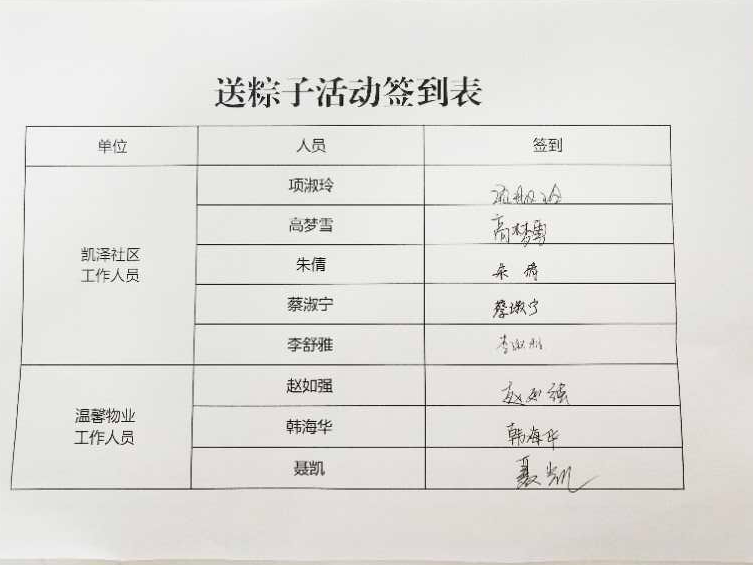 送粽子活动签到表
单位 人员 签到
凯泽社区
工作人员
项淑玲
高梦雪 高梦雪
朱倩 朱倩
蔡淑宁 蔡淑宁
李舒雅
温馨物业
工作人员
赵如强 赵如强
韩海华 韩海华
聂凯 聂凯